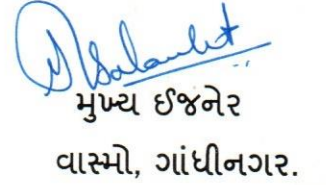 મુખ્ય ઈજનેર
વાસ્મો, ગાંધીનગર.